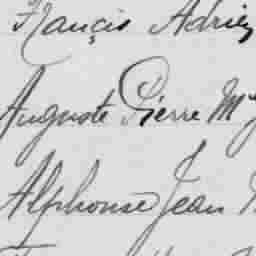 Françis Adrien
Auguste Pierre M
Alphonse Jean